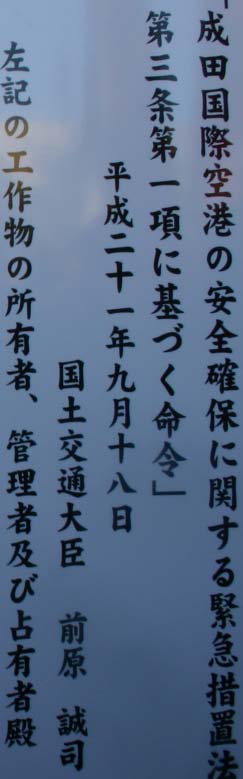 「成田国際空港の安全確保に関する緊急措置法
第三条第一項に基づく命令」
平成二十一年九月十八日
国土交通大臣 前原 誠司
左記の工作物の所有者、管理者及び占有者殿